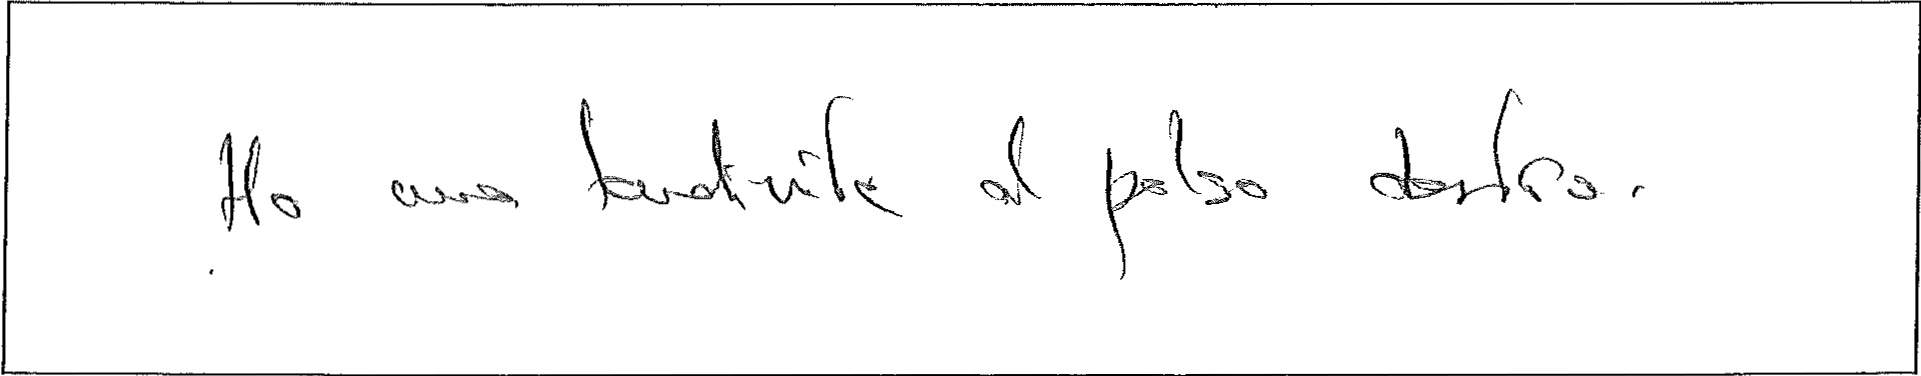 Ho una tendinite al polso destro.